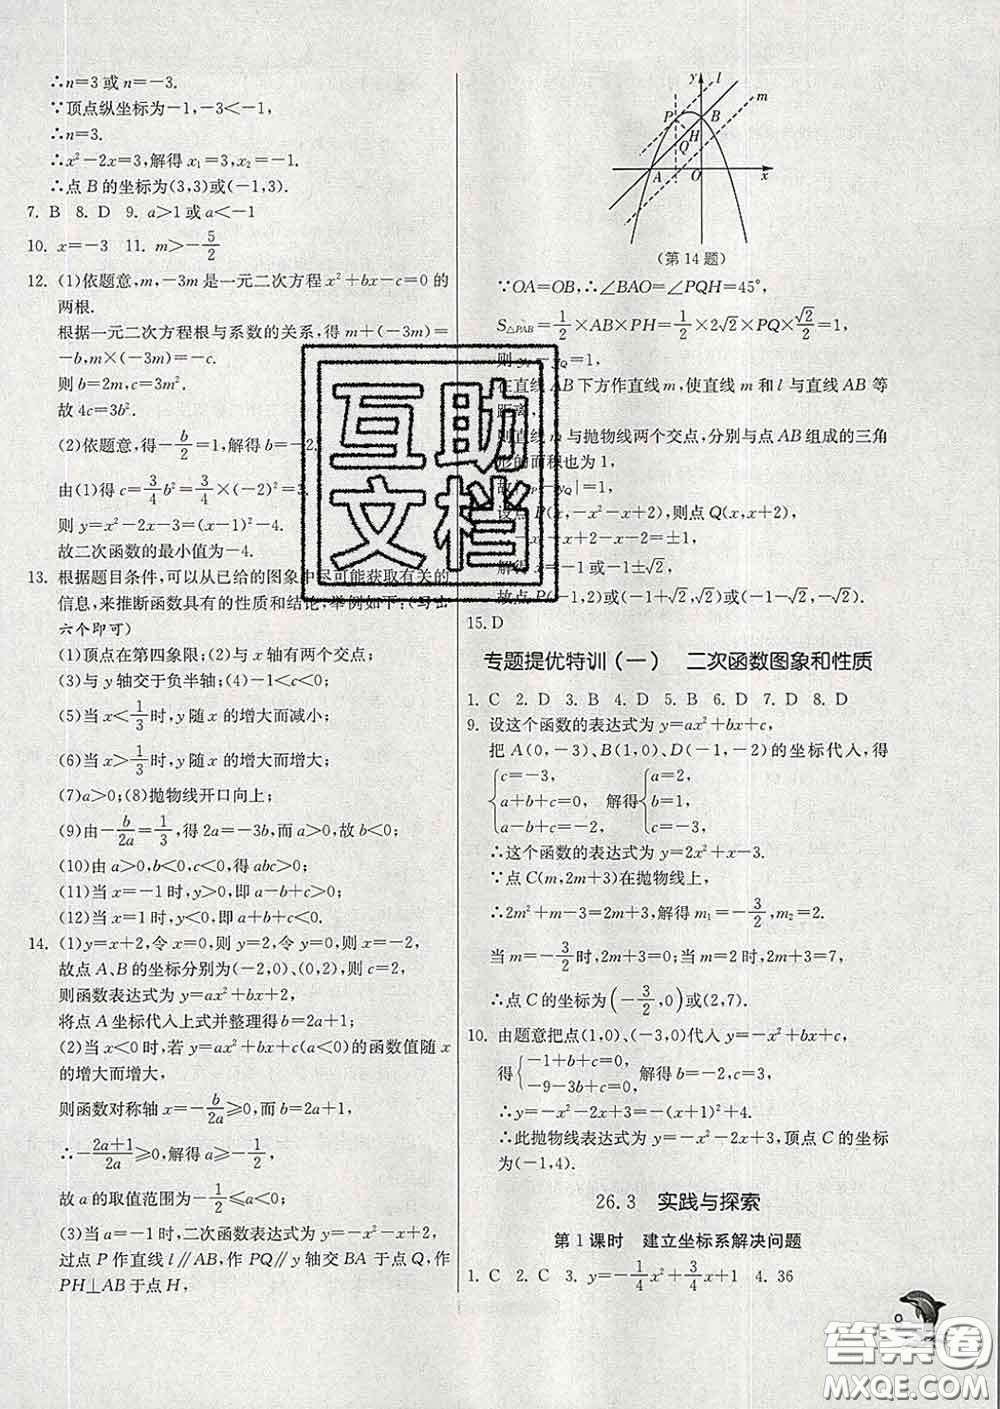 ∴n=3 或 n=-3.
∵顶点纵坐标为-1,-3<-1,
∴n=3.
∴x²-2x=3,解得 x₁=3,x₂=-1.
∴点 B 的坐标为(3,3)或(-1,3).
7. B 8. D 9. a>1 或 a<-1
10. x=-3 11. m>-5/2
12. (1)依题意,m,-3m 是一元二次方程 x²+bx-c=0 的
两根.
根据一元二次方程根与系数的关系,得 m+(-3m)=
-b,m×(-3m)=-c.
则 b=2m,c=3m².
故 4c=3b².
(2)依题意,得-b/2=1,解得 b=-2.
由(1)得 c=3/4b²=3/4×(-2)²=3.
则 y=x²-2x-3=(x-1)²-4.
故二次函数的最小值为-4.
13. 根据题目条件,可以从已给的图象中尽可能获取有关的
信息,来推断函数具有的性质和结论,举例如下:(写出
六个即可)
(1)顶点在第四象限;(2)与 x 轴有两个交点;
(3)与 y 轴交于负半轴;(4)-1<c<0;
(5)当 x<1/3时,y 随 x 的增大而减小;
(6)当 x>1/3时,y 随 x 的增大而增大;
(7)a>0;(8)抛物线开口向上;
(9)由-b/2a=1/3,得 2a=-3b,而 a>0,故 b<0;
(10)由 a>0,b<0,c<0,得 abc>0;
(11)当 x=-1 时,y>0,即 a-b+c>0;
(12)当 x=1 时,y<0,即 a+b+c<0.
14. (1)y=x+2,令 x=0,则 y=2,令 y=0,则 x=-2,
故点 A、B 的坐标分别为(-2,0)、(0,2),则 c=2,
则函数表达式为 y=ax²+bx+2,
将点 A 坐标代入上式并整理得 b=2a+1;
(2)当 x<0 时,若 y=ax²+bx+c(a<0)的函数值随 x
的增大而增大,
则函数对称轴 x=-b/2a≥0,而 b=2a+1,
∴-(2a+1)/2a≥0,解得 a≥-1/2,
故 a 的取值范围为-1/2≤a<0;
(3)当 a=-1 时,二次函数表达式为 y=-x²-x+2,
过点 P 作直线 l∥AB,作 PQ∥y 轴交 BA 于点 Q,作
PH⊥AB 于点 H,
y
l
m
P
B
H
Q
A
O
x
(第 14 题)
∵OA=OB,∴∠BAO=∠PQH=45°,
S△PAB=1/2×AB×PH=1/2×2√2×PQ×√2/2=1,
则 yP-yQ=1,
在直线 AB 下方作直线 m,使直线 m 和 l 与直线 AB 等
距离,
则直线 m 与抛物线两个交点,分别与点 AB 组成的三角
形的面积也为 1,
故|yP-yQ|=1,
设点 P(x,-x²-x+2),则点 Q(x,x+2),
-x²-x+2-x-2=±1,
解得 x=-1 或-1±√2,
故点 P(-1,2)或(-1+√2,√2)或(-1-√2,-√2).
15. D
专题提优特训(一) 二次函数图象和性质
1. C 2. D 3. B 4. D 5. B 6. D 7. D 8. D
9. 设这个函数的表达式为 y=ax²+bx+c,
把 A(0,-3)、B(1,0)、D(-1,-2)的坐标代入,得
{c=-3, a+b+c=0, a-b+c=-2, 解得{a=2, b=1, c=-3.
∴这个函数的表达式为 y=2x²+x-3.
∵点 C(m,2m+3)在抛物线上,
∴2m²+m-3=2m+3,解得 m₁=-3/2,m₂=2.
当 m=-3/2时,2m+3=0;当 m=2 时,2m+3=7,
∴点 C 的坐标为(-3/2,0)或(2,7).
10. 由题意把点(1,0)、(-3,0)代入 y=-x²+bx+c,
得{-1+b+c=0, -9-3b+c=0, 解得 b=-2,c=3.
∴y=-x²-2x+3=-(x+1)²+4.
∴此抛物线表达式为 y=-x²-2x+3,顶点 C 的坐标
为(-1,4).
26.3 实践与探索
第 1 课时 建立坐标系解决问题
1. C 2. C 3. y=-1/4x²+3/4x+1 4. 36
互助
文档
答案圈
MXQE.COM